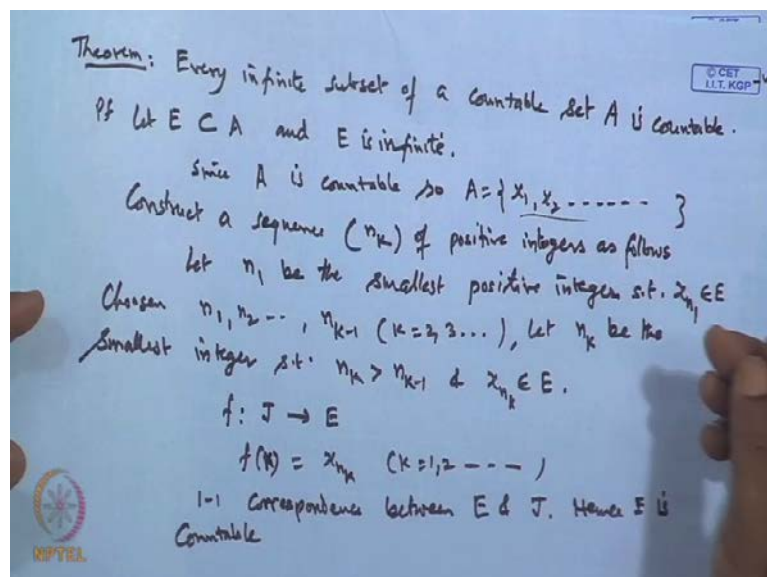 Theorem: Every infinite subset of a countable set A is countable.
© CET
I.I.T. KGP
Pf Let E ⊂ A and E is infinite.
Since A is countable so A = { x₁, x₂ ------ }
Construct a sequence (nₖ) of positive integers as follows
Let n₁ be the smallest positive integer s.t. xₙ₁ ∈ E
Choosen n₁, n₂ --, nₖ₋₁ (k=2,3...), Let nₖ be the
Smallest integer s.t. nₖ > nₖ₋₁ & xₙₖ ∈ E.
f: J → E
f(k) = xₙₖ (k=1,2 ----)
1-1 correspondence between E & J. Hence E is
Countable
NPTEL